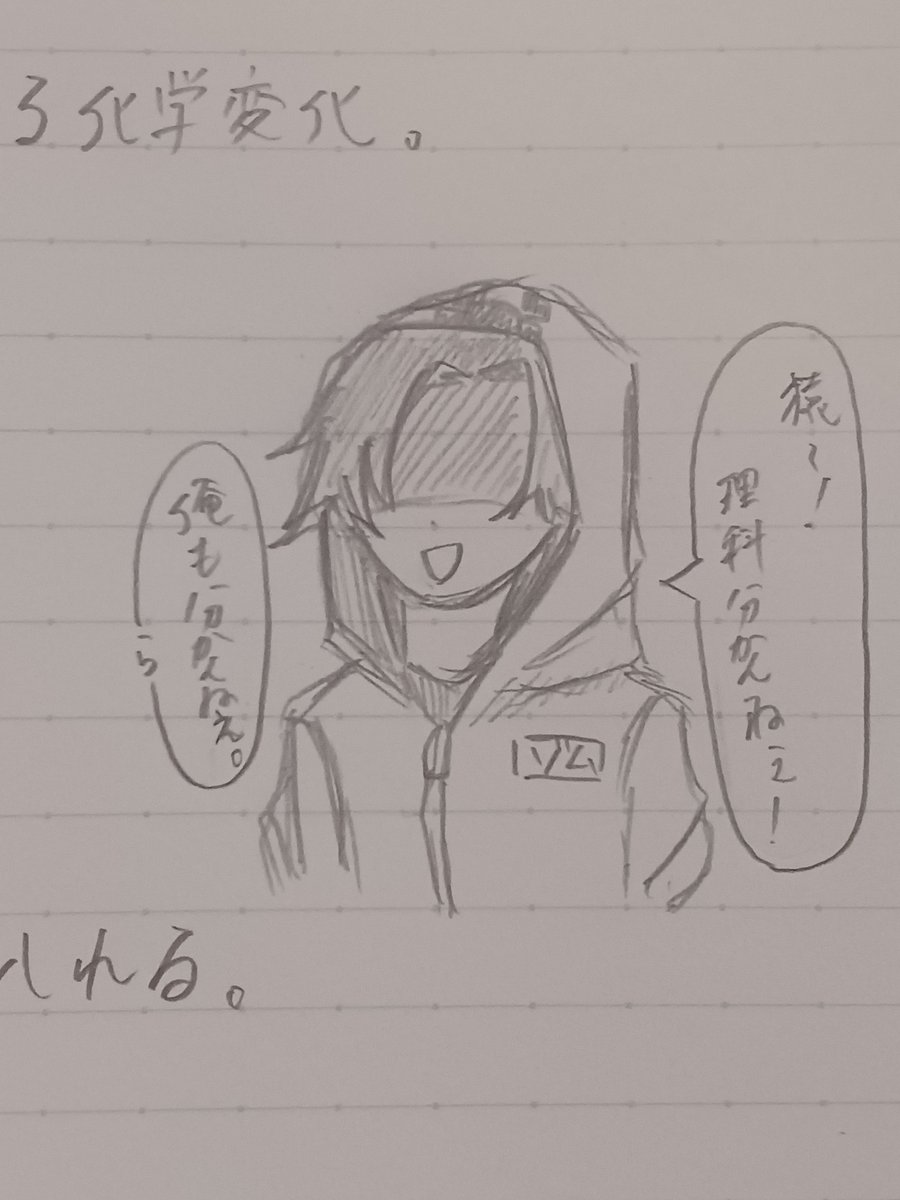 る化学変化。
猿〜!
理科分かんねえ!
俺も分かんねぇ。
られる。